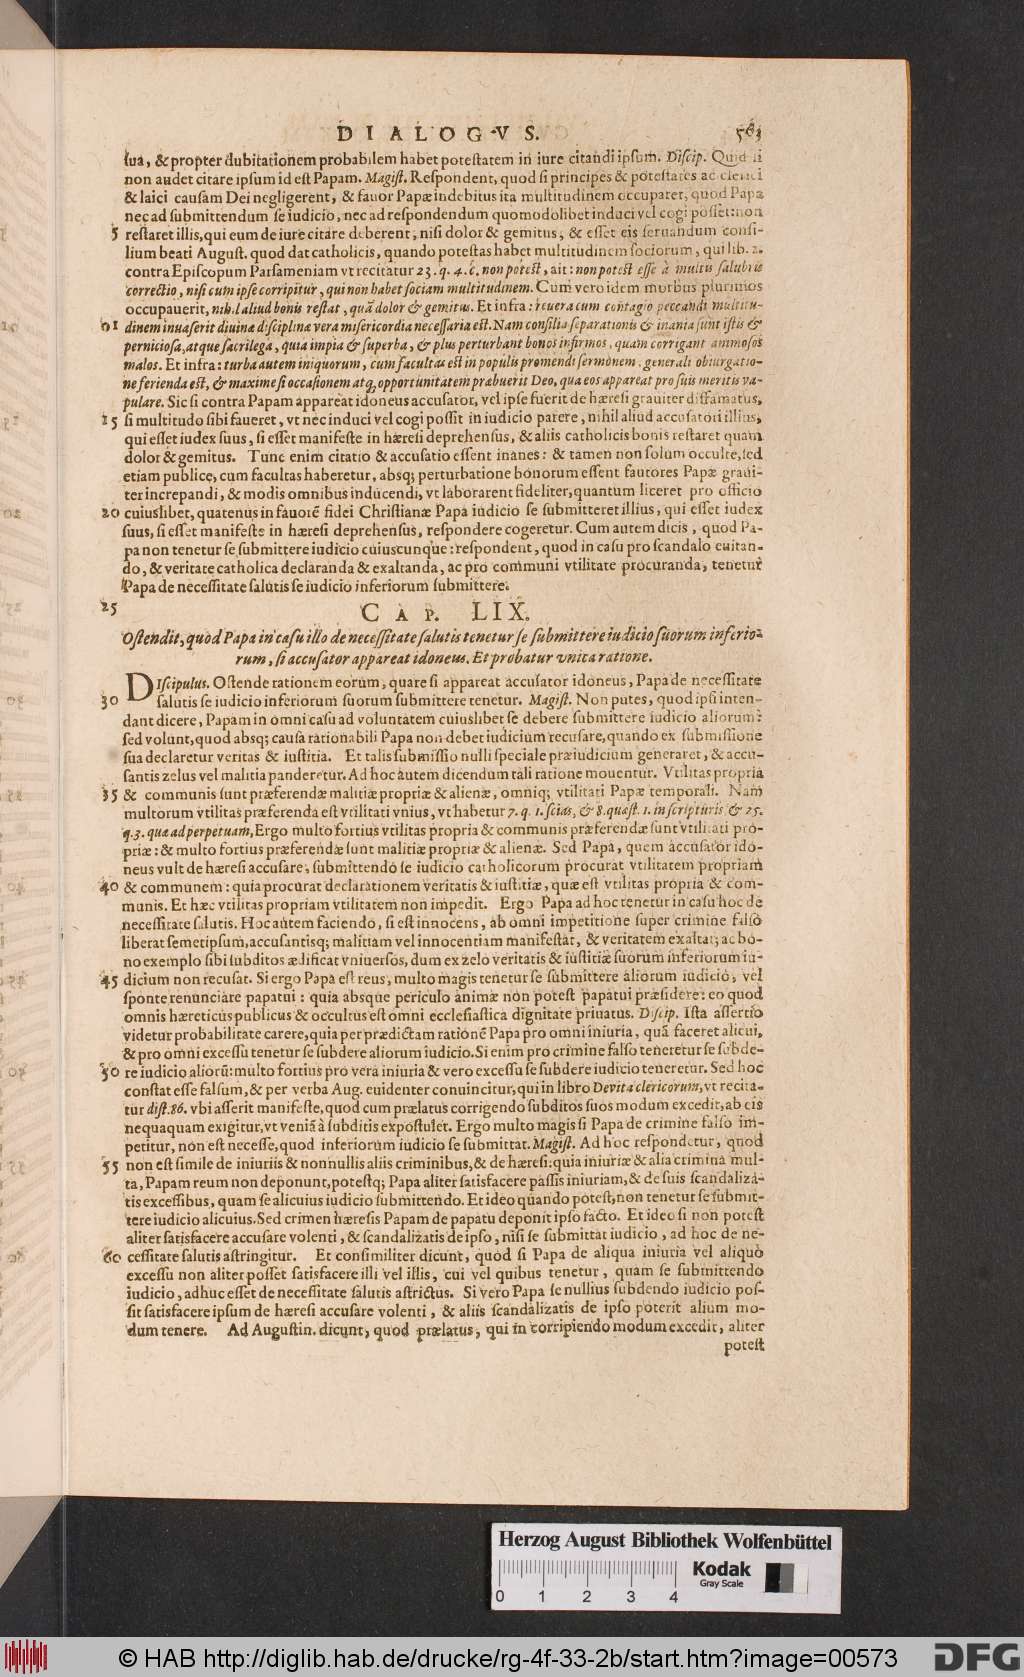 DIALOGVS. 561
sua, & propter dubitationem probabilem habet potestatem in iure citandi ipsum. Discip. Quid si
non audet citare ipsum id est Papam. Magist. Respondent, quod si principes & potestates ac clerici
& laici causam Dei negligerent, & fauor Papæ indebitus ita multitudinem occuparet, quod Papa
nec ad submittendum se iudicio, nec ad respondendum quomodolibet induci vel cogi posset: non
5 restaret illis, qui eum de iure citare deberent, nisi dolor & gemitus, & esset eis seruandum consi-
lium beati August. quod dat catholicis, quando potestas habet multitudinem sociorum, qui lib. 2.
contra Episcopum Parsameniam vt recitatur 23. q. 4. c. non potest, ait: non potest esse à multis salubris
correctio, nisi cum ipse corripitur, qui non habet sociam multitudinem. Cum vero idem morbus plurimos
occupauerit, nihil aliud bonis restat, quã dolor & gemitus. Et infra: reuera cum contagio peccandi multitu-
01 dinem inuaserit diuina disciplina vera misericordia necessaria est. Nam consilia separationis & inania sunt istis &
perniciosa, atque sacrilega, quia impia & superba, & plus perturbant bonos infirmos, quam corrigant animosos
malos. Et infra: turba autem iniquorum, cum facultas est in populis promendi sermonem, generali obiurgatio-
ne ferienda est, & maxime si occasionem atq; opportunitatem præbuerit Deo, qua eos appareat pro suis meritis va-
pulare. Sic si contra Papam appareat idoneus accusator, vel ipse fuerit de hæresi grauiter diffamatus,
15 si multitudo sibi faueret, vt nec induci vel cogi possit in iudicio parere, nihil aliud accusatori illius,
qui esset iudex suus, si esset manifeste in hæresi deprehensus, & aliis catholicis bonis restaret quam
dolor & gemitus. Tunc enim citatio & accusatio essent inanes: & tamen non solum occulte, sed
etiam publice, cum facultas haberetur, absq; perturbatione bonorum essent fautores Papæ graui-
ter increpandi, & modis omnibus inducendi, vt laborarent fideliter, quantum liceret pro officio
20 cuiuslibet, quatenus in fauorẽ fidei Christianæ Papa iudicio se submitteret illius, qui esset iudex
suus, si esset manifeste in hæresi deprehensus, respondere cogeretur. Cum autem dicis, quod Pa-
pa non tenetur se submittere iudicio cuiuscunque: respondent, quod in casu pro scandalo euitan-
do, & veritate catholica declaranda & exaltanda, ac pro communi vtilitate procuranda, tenetur
Papa de necessitate salutis se iudicio inferiorum submittere.
25 CAP. LIX.
Ostendit, quod Papa in casu illo de necessitate salutis tenetur se submittere iudicio suorum inferio-
rum, si accusator appareat idoneus. Et probatur vnica ratione.
DIscipulus. Ostende rationem eorum, quare si appareat accusator idoneus, Papa de necessitate
30 salutis se iudicio inferiorum suorum submittere tenetur. Magist. Non putes, quod ipsi inten-
dant dicere, Papam in omni casu ad voluntatem cuiuslibet se debere submittere iudicio aliorum:
sed volunt, quod absq; causa rationabili Papa non debet iudicium recusare, quando ex submissione
sua declaretur veritas & iustitia. Et talis submissio nulli speciale præiudicium generaret, & accu-
santis zelus vel malitia panderetur. Ad hoc autem dicendum tali ratione mouentur. Vtilitas propria
35 & communis sunt præferendæ malitiæ propriæ & alienæ, omniq; vtilitati Papæ temporali. Nam
multorum vtilitas præferenda est vtilitati vnius, vt habetur 7. q. 1. scias, & 8. quæst. 1. in scripturis & 25.
q. 3. quæ ad perpetuam, Ergo multo fortius vtilitas propria & communis præferendæ sunt vtilitati pro-
priæ: & multo fortius præferendæ sunt malitiæ propriæ & alienæ. Sed Papa, quem accusator ido-
neus vult de hæresi accusare, submittendo se iudicio catholicorum procurat vtilitatem propriam
40 & communem: quia procurat declarationem veritatis & iustitiæ, quæ est vtilitas propria & com-
munis. Et hæc vtilitas propriam vtilitatem non impedit. Ergo Papa ad hoc tenetur in casu hoc de
necessitate salutis. Hoc autem faciendo, si est innocens, ab omni impetitione super crimine falso
liberat semetipsum, accusantisq; malitiam vel innocentiam manifestat, & veritatem exaltat; ac bo-
no exemplo sibi subditos ædificat vniuersos, dum ex zelo veritatis & iustitiæ suorum inferiorum iu-
45 dicium non recusat. Si ergo Papa est reus, multo magis tenetur se submittere aliorum iudicio, vel
sponte renunciare papatui: quia absque periculo animæ non potest papatui præsidere: eo quod
omnis hæreticus publicus & occultus est omni ecclesiastica dignitate priuatus. Discip. Ista assertio
videtur probabilitate carere, quia per prædictam rationẽ Papa pro omni iniuria, quã faceret alicui,
& pro omni excessu tenetur se subdere aliorum iudicio. Si enim pro crimine falso teneretur se subde-
50 re iudicio aliorũ: multo fortius pro vera iniuria & vero excessu se subdere iudicio teneretur. Sed hoc
constat esse falsum, & per verba Aug. euidenter conuincitur, qui in libro De vita clericorum, vt recita-
tur dist. 86. vbi asserit manifeste, quod cum prælatus corrigendo subditos suos modum excedit, ab eis
nequaquam exigitur, vt veniã à subditis expostulet. Ergo multo magis si Papa de crimine falso im-
petitur, non est necesse, quod inferiorum iudicio se submittat. Magist. Ad hoc respondetur, quod
55 non est simile de iniuriis & nonnullis aliis criminibus, & de hæresi: quia iniuriæ & alia crimina mul-
ta, Papam reum non deponunt, potestq; Papa aliter satisfacere passis iniuriam, & de suis scandaliza-
tis excessibus, quam se alicuius iudicio submittendo. Et ideo quando potest, non tenetur se submit-
tere iudicio alicuius. Sed crimen hæresis Papam de papatu deponit ipso facto. Et ideo si non potest
aliter satisfacere accusare volenti, & scandalizatis de ipso, nisi se submittat iudicio, ad hoc de ne-
60 cessitate salutis astringitur. Et consimiliter dicunt, quod si Papa de aliqua iniuria vel aliquo
excessu non aliter posset satisfacere illi vel illis, cui vel quibus tenetur, quam se submittendo
iudicio, adhuc esset de necessitate salutis astrictus. Si vero Papa se nullius subdendo iudicio pos-
sit satisfacere ipsum de hæresi accusare volenti, & aliis scandalizatis de ipso poterit alium mo-
dum tenere. Ad Augustin. dicunt, quod prælatus, qui in corripiendo modum excedit, aliter
potest
Herzog August Bibliothek Wolfenbüttel
0 1 2 3 4
Kodak
Gray Scale
© HAB http://diglib.hab.de/drucke/rg-4f-33-2b/start.htm?image=00573
DFG